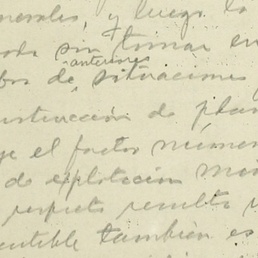 nerales, y luego la
sin tomar en
anteriores
de situaciones
nstrucción de plan
ge el factor número
de explotación
respecto resulta
también es